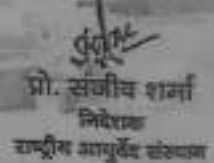 प्रो. संजीव शर्मा
निदेशक
राष्ट्रीय आयुर्वेद संस्थान